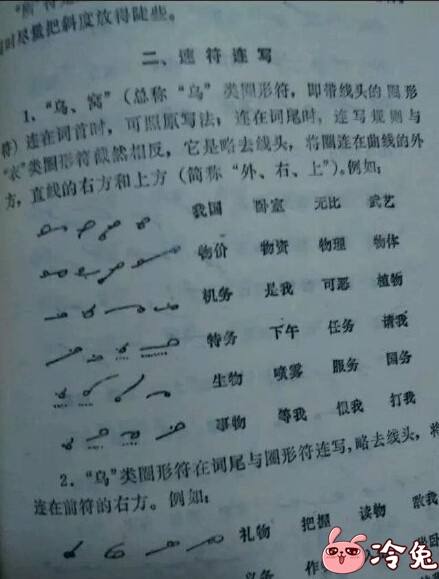 时尽量把斜度放得陡些。
二、速符连写
1．“乌、窝”（总称“乌”类圆形符，即带线头的圆形
符）连在词首时，可照原写法；连在词尾时，连写规则与
“衣”类圆形符截然相反，它是略去线头，将圈连在曲线的外
方，直线的右方和上方（简称“外、右、上”）。例如：
我国 卧室 无比 武艺
物价 物资 物理 物体
机务 是我 可恶 植物
特务 下午 任务 请我
生物 喷雾 服务 国务
事物 等我 恨我 打我
2．“乌”类圆形符在词尾与圆形符连写，略去线头，将
连在前符的右方。例如：
礼物 把握 读物 敢我
义务
冷兔